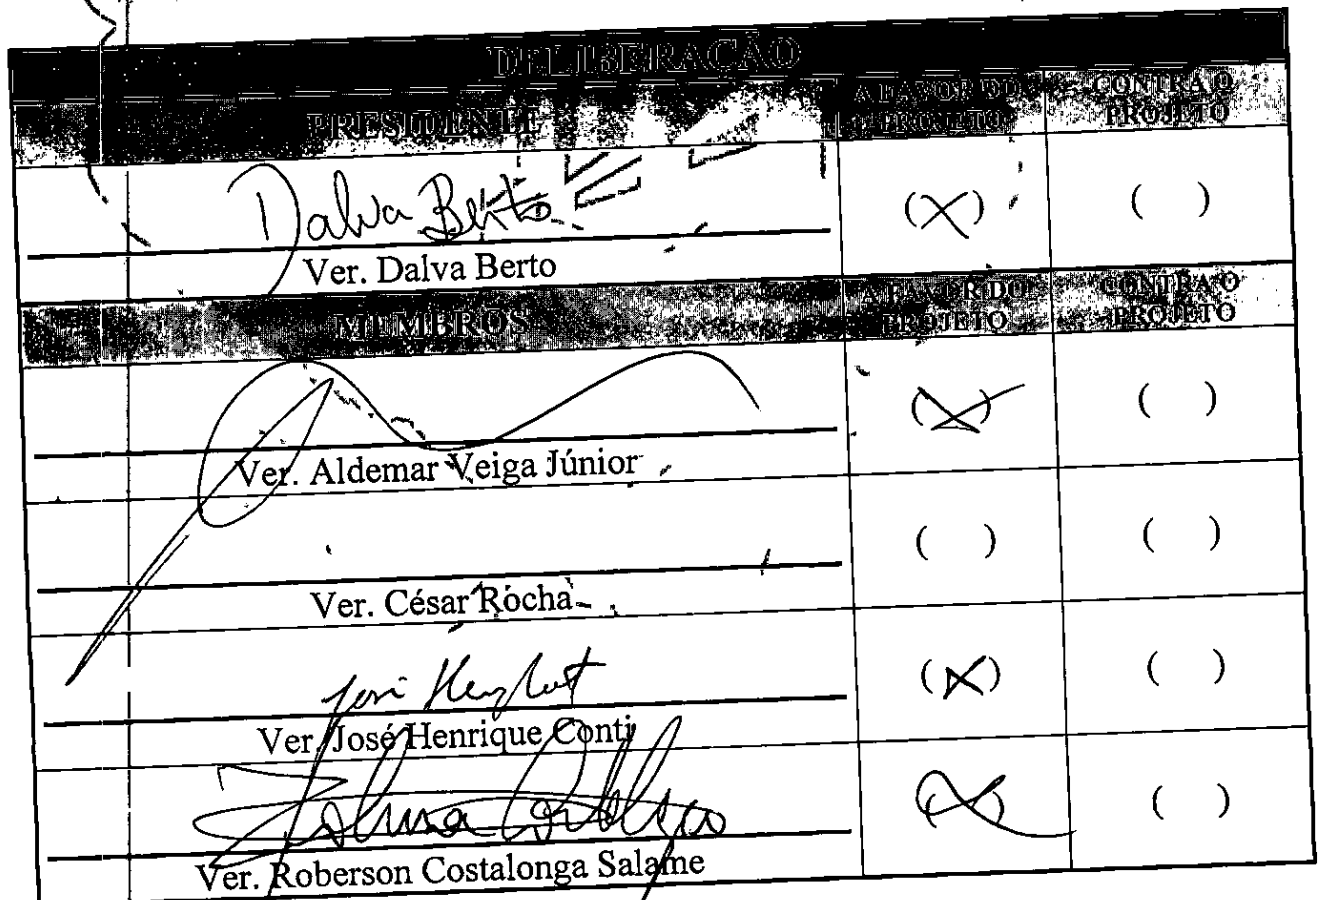 DELIBERAÇÃO
PRESIDENTE
A FAVOR DO PROJETO
CONTRA O PROJETO
Dalva Berto
(X) ( )
Ver. Dalva Berto
MEMBROS
A FAVOR DO PROJETO
CONTRA O PROJETO
(X) ( )
Ver. Aldemar Veiga Júnior
( ) ( )
Ver. César Rocha
(X) ( )
Ver. José Henrique Conti
(X) ( )
Ver. Roberson Costalonga Salame